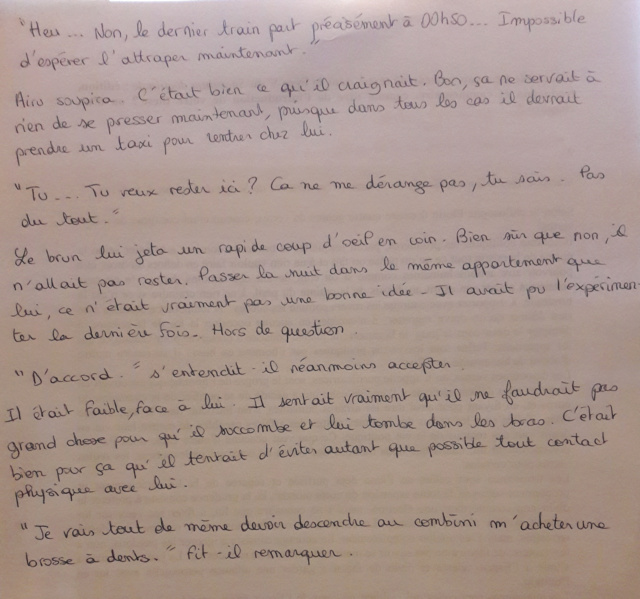 "Heu... Non, le dernier train part précisément à 00h50... Impossible
d'espérer l'attraper maintenant."
Airu soupira. C'était bien ce qu'il craignait. Bon, ça ne servait à
rien de se presser maintenant, puisque dans tous les cas il devrait
prendre un taxi pour rentrer chez lui.
"Tu... Tu veux rester ici ? Ca ne me dérange pas, tu sais. Pas
du tout."
Le brun lui jeta un rapide coup d'oeil en coin. Bien sûr que non, il
n'allait pas rester. Passer la nuit dans le même appartement que
lui, ce n'était vraiment pas une bonne idée. Il avait pu l'expérimen-
ter la dernière fois. Hors de question.
"D'accord." s'entendit-il néanmoins accepter.
Il était faible, face à lui. Il sentait vraiment qu'il ne faudrait pas
grand chose pour qu'il soccombe et lui tombe dans les bras. C'était
bien pour ça qu'il tentait d'éviter autant que possible tout contact
physique avec lui.
"Je vais tout de même devoir descendre au combini m'acheter une
brosse à dents." fit-il remarquer.